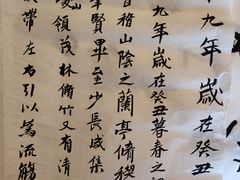 九年歲在癸丑
九年歲在癸丑暮春之
稽山陰之蘭亭脩稧
賢畢至少長咸集
山
領茂林脩竹又有清
帶左右引以為流觴